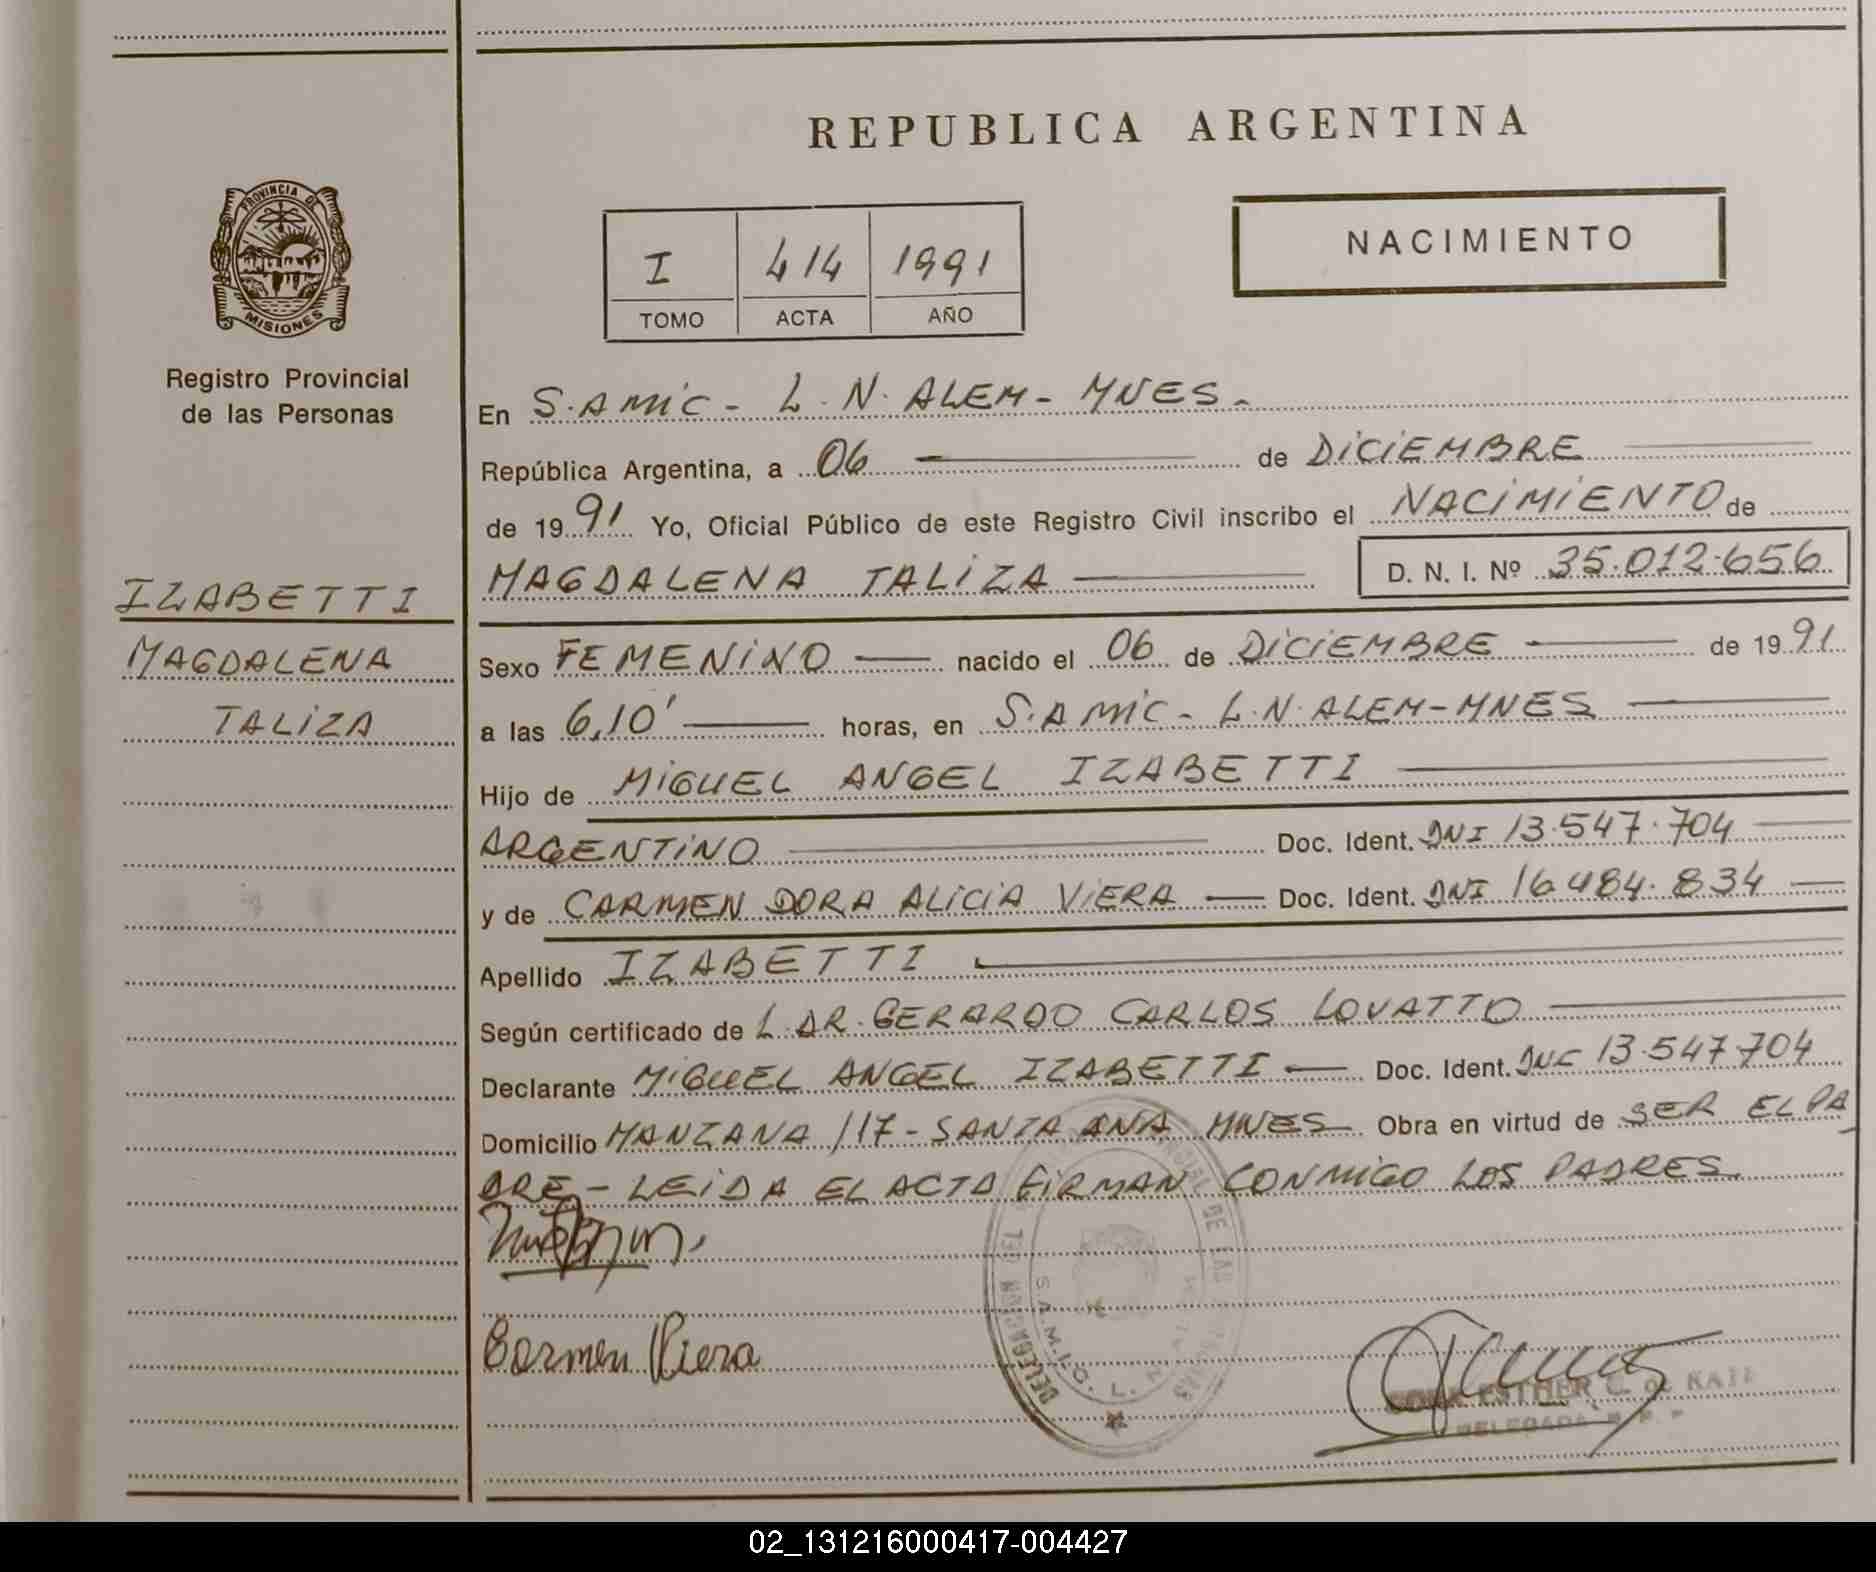 REPUBLICA ARGENTINA
PROVINCIA DE
MISIONES
Registro Provincial
de las Personas
I 414 1991
TOMO ACTA AÑO
NACIMIENTO
En S.AMIC - L.N. ALEM - MNES.
República Argentina, a 06 de DICIEMBRE
de 1991 Yo, Oficial Público de este Registro Civil inscribo el NACIMIENTO de
MAGDALENA TALIZA D. N. I. Nº 35.012.656
IZABETTI
MAGDALENA
TALIZA
Sexo FEMENINO nacido el 06 de DICIEMBRE de 1991
a las 6,10' horas, en S.AMIC - L.N. ALEM - MNES
Hijo de MIGUEL ANGEL IZABETTI
ARGENTINO Doc. Ident. DNI 13.547.704
y de CARMEN DORA ALICIA VIERA Doc. Ident. DNI 16.484.834
Apellido IZABETTI
Según certificado de L. DR. GERARDO CARLOS LOVATTO
Declarante MIGUEL ANGEL IZABETTI Doc. Ident. 13.547704
Domicilio MANZANA 117 - SANTA ANA MNES Obra en virtud de SER EL PA
DRE - LEIDA EL ACTA FIRMAN CONMIGO LOS PADRES.
Carmen Viera
DELEGACION DEL
S.A.M.I.C. L. N.
ESTHER C. de
DELEGADA
02_131216000417-004427